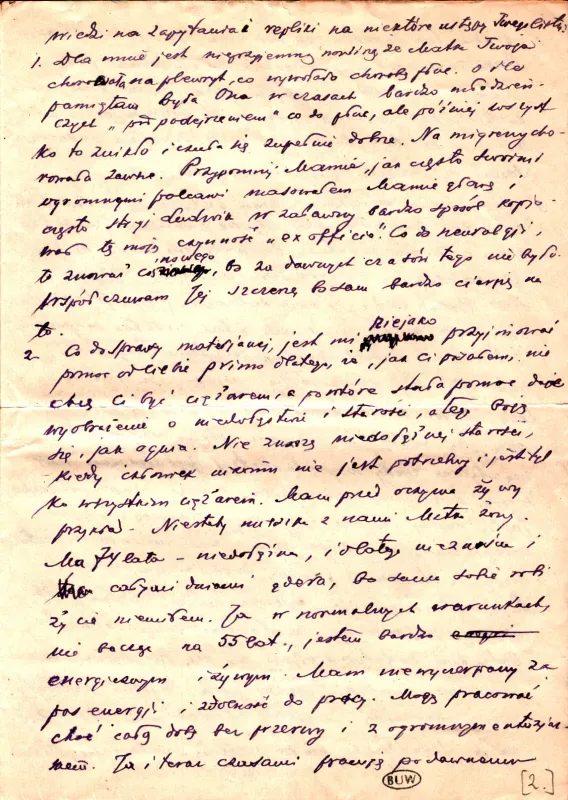 wiedzi na zapytania i repliki na niektóre ustępy Twego listu:
1. Dla mnie jest nieprzyjemną nowiną że Matka Twoja
chorowała na pleuryt, co wywołało chorobę płuc. O ile
pamiętam była Ona w czasach bardzo młodzień-
czych "pod podejrzeniem" co do płuc, ale później wszyst
ko to znikło i czuła się zupełnie dobrze. Na migreny cho-
rowała zawsze. Przypomnij Mamie, jak często swoimi
ogromnymi palcami masowałem Mamie głowę i
często stryj Ludwik w zabawny bardzo sposób kopjo-
wał tę moją czynność "ex officio". Co do neuralgji,
to znowuż coś nowego, bo za dawnych czasów tego nie było.
Współczuwam Jej szczerze bo sam bardzo cierpię na
to.
2. Co do sprawy materjalnej, jest mi niejako przyjmować
pomoc od Ciebie primo dlatego, że, jak Ci pisałem, nie
chcę Ci być ciężarem, a powtóre stała pomoc daje
wyobrażenie o niedołęstwie i starości, a tego boję
się, jak ognia. Nie znoszę niedołężnej starości,
kiedy człowiek nikomu nie jest potrzebny i jest tyl
ko wszystkim ciężarem. Mam przed oczyma żywy
przykład - Niestety mieszka z nami Matka żony.
Ma 74 lata - niedołężna, i dlatego nieznośna i
całymi dniami zdera, bo sama sobie robi
życie niemiłem. Ja w normalnych warunkach,
nie bacząc na 55 lat, jestem bardzo
energicznym i żywym. Mam niewyczerpany za
pas energji i zdolność do pracy. Mogę pracować
choć całą dobę bez przerwy i z ogromnym entuzjaz-
mem. Ja i teraz czasami pracuję po dawnemu
BUW
[2.]